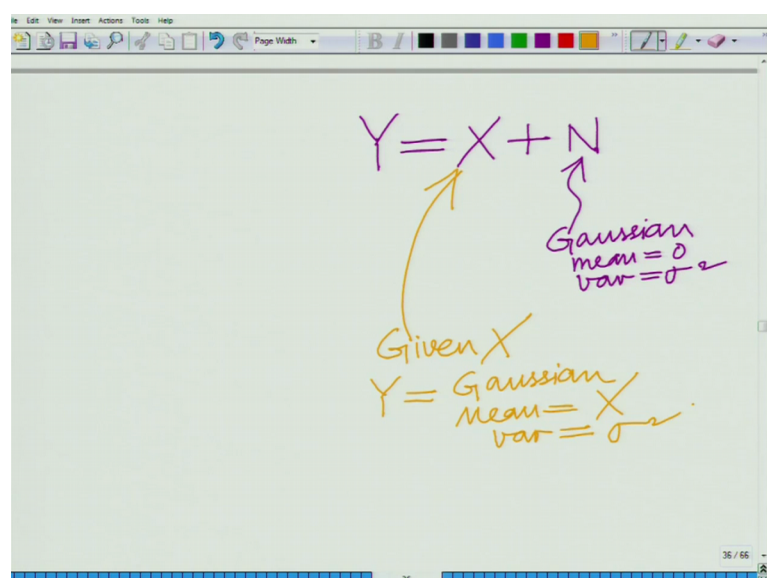 le Edit View Insert Actions Tools Help
Page Width
B I
Y = X + N
Gaussian
mean = 0
var = σ²
Given X
Y = Gaussian
mean = X
var = σ²
36 / 66